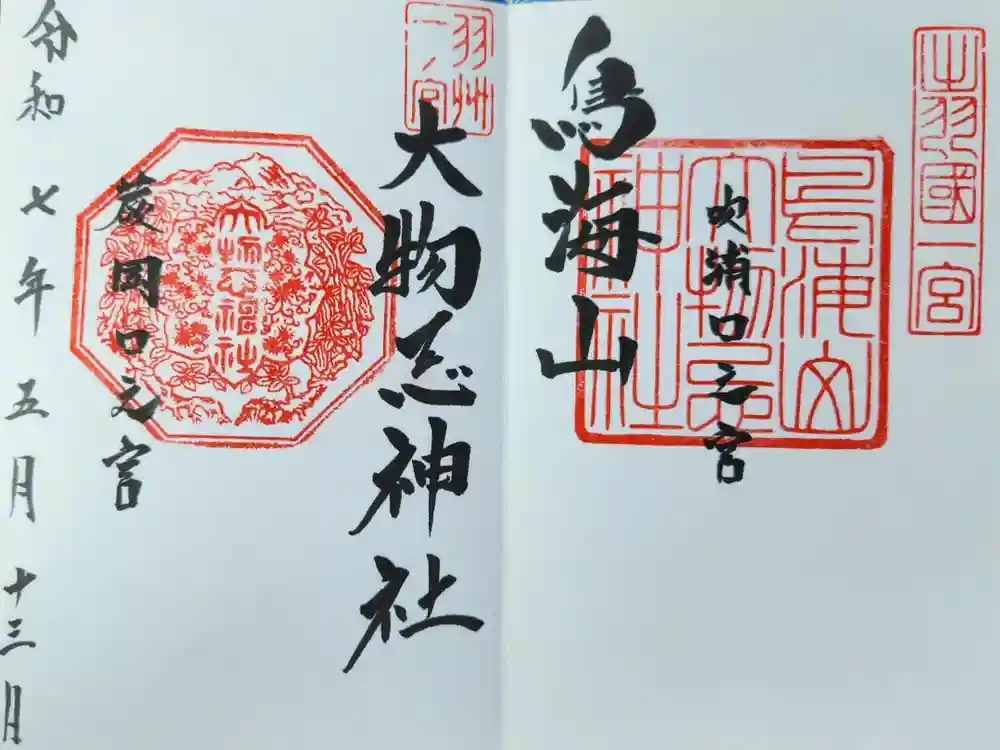 出羽國一宮
鳥海山
大物忌
神社
吹浦口之宮
鳥海山
羽州
一宮
大物忌神社
大物忌神社
蕨岡口之宮
令和七年五月十三日